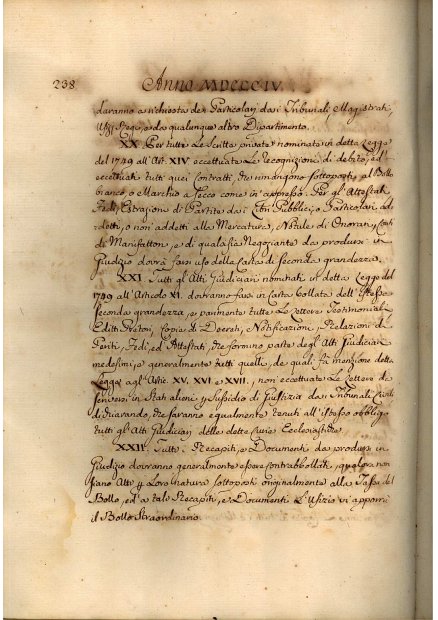 238 Anno MDCCCIV
daranno a richiesta de' Particolari da i Tribunali, Magistrati,
Ufizj Regi, o da qualunque altro Dipartimento.
XX. Per tutte Le Scritte private nominate in detta Legge
del 1749 all'Art. XIV eccettuate Le recognizioni di debito, ed
eccettuati tutti quei Contratti, che rimangono sottoposti al Bollo
bianco, o Marchio a secco come in appresso: Per gl'Attestati,
Fedi, Estrazione di Partite da i Libri Pubblici, o Particolari ad-
detti, o non addetti alla Mercatura, Notule di Onorari, Conti
di Manifattori, e di qualsisia Negoziante da prodursi in
Giudizio dovrà farsi uso della Carta di seconda grandezza.
XXI. Tutti gl'Atti Giudiciari nominati in detta Legge del
1749 all'Articolo XI. dovranno farsi in Carta bollata dell'istessa
seconda grandezza, e parimente tutte Le Lettere Testimoniali
Editti Pretori, Copie di Decreti, Notificazioni, Relazioni di
Periti, Fedi, ed Attestati, che formino parte degl'Atti Giudiciari
medesimi, e generalmente tutti quelli, de quali fa menzione detta
Legge agl'Artic. XV, XVI e XVII, non eccettuate Le Lettere da
servirsi in Stati alieni p Sussidio di Giustizia da i Tribunali Civili
di Questi Stati, che saranno egualmente tenuti all'istesso obbligo
tutti gl'Atti Giudiciari delle dette Curie Ecclesiastiche.
XXII. Tutti i Recapiti, o Documenti da prodursi in
Giudizio dovranno generalmente essere contrabbollati, qualora non
siano Atti p Loro natura sottoposti originalmente alla Tassa del
Bollo, ed a tali Recapiti, e Documenti L'Ufizio vi apporrà
il Bollo Straordinario.